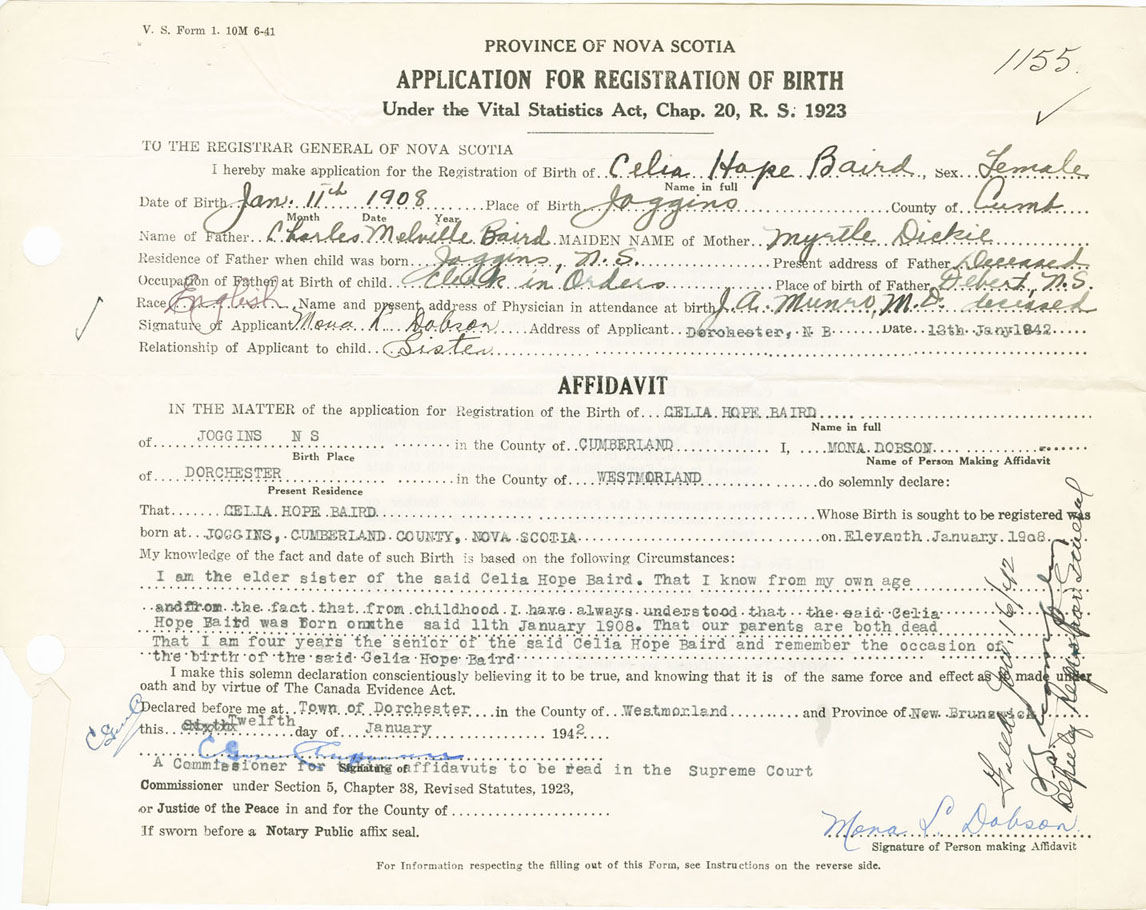 V. S. Form 1. 10M 6-41
PROVINCE OF NOVA SCOTIA
1155.
APPLICATION FOR REGISTRATION OF BIRTH
Under the Vital Statistics Act, Chap. 20, R. S. 1923
TO THE REGISTRAR GENERAL OF NOVA SCOTIA
I hereby make application for the Registration of Birth of Celia Hope Baird, Sex Female
Name in full
Date of Birth Jan. 11th 1908 Place of Birth Joggins County of Cumb
Month Date Year
Name of Father Charles Melville Baird MAIDEN NAME of Mother Myrtle Dickie
Residence of Father when child was born Joggins, N.S. Present address of Father Deceased
Occupation of Father at Birth of child Clerk in Orders Place of birth of Father Debert, N.S.
Race English Name and present address of Physician in attendance at birth J. A. Munro, M.D. decised
Signature of Applicant Mona Dobson Address of Applicant Dorchester, N B Date 13th Jany1942
Relationship of Applicant to child Sister
AFFIDAVIT
IN THE MATTER of the application for Registration of the Birth of CELIA HOPE BAIRD
Name in full
of JOGGINS N S in the County of CUMBERLAND I, MONA DOBSON
Birth Place Name of Person Making Affidavit
of DORCHESTER in the County of WESTMORLAND do solemnly declare:
Present Residence
That CELIA HOPE BAIRD Whose Birth is sought to be registered was
born at JOGGINS, CUMBERLAND COUNTY, NOVA SCOTIA on Eleventh January 1908.
My knowledge of the fact and date of such Birth is based on the following Circumstances:
I am the elder sister of the said Celia Hope Baird. That I know from my own age
and from the fact that from childhood I have always understood that the said Celia
Hope Baird was Born on the said 11th January 1908. That our parents are both dead
That I am four years the senior of the said Celia Hope Baird and remember the occasion of
the birth of the said Celia Hope Baird
I make this solemn declaration conscientiously believing it to be true, and knowing that it is of the same force and effect as if made under
oath and by virtue of The Canada Evidence Act.
Declared before me at Town of Dorchester in the County of Westmorland and Province of New Brunswick
this Sixth Twelfth day of January 1942
Signature of
A Commissioner for taking affidavuts to be read in the Supreme Court
Commissioner under Section 5, Chapter 38, Revised Statutes, 1923,
or Justice of the Peace in and for the County of
If sworn before a Notary Public affix seal.
Mona Dobson
Signature of Person making Affidavit
For Information respecting the filling out of this Form, see Instructions on the reverse side.
Filed Jan. 16/42
Deputy Registrar General